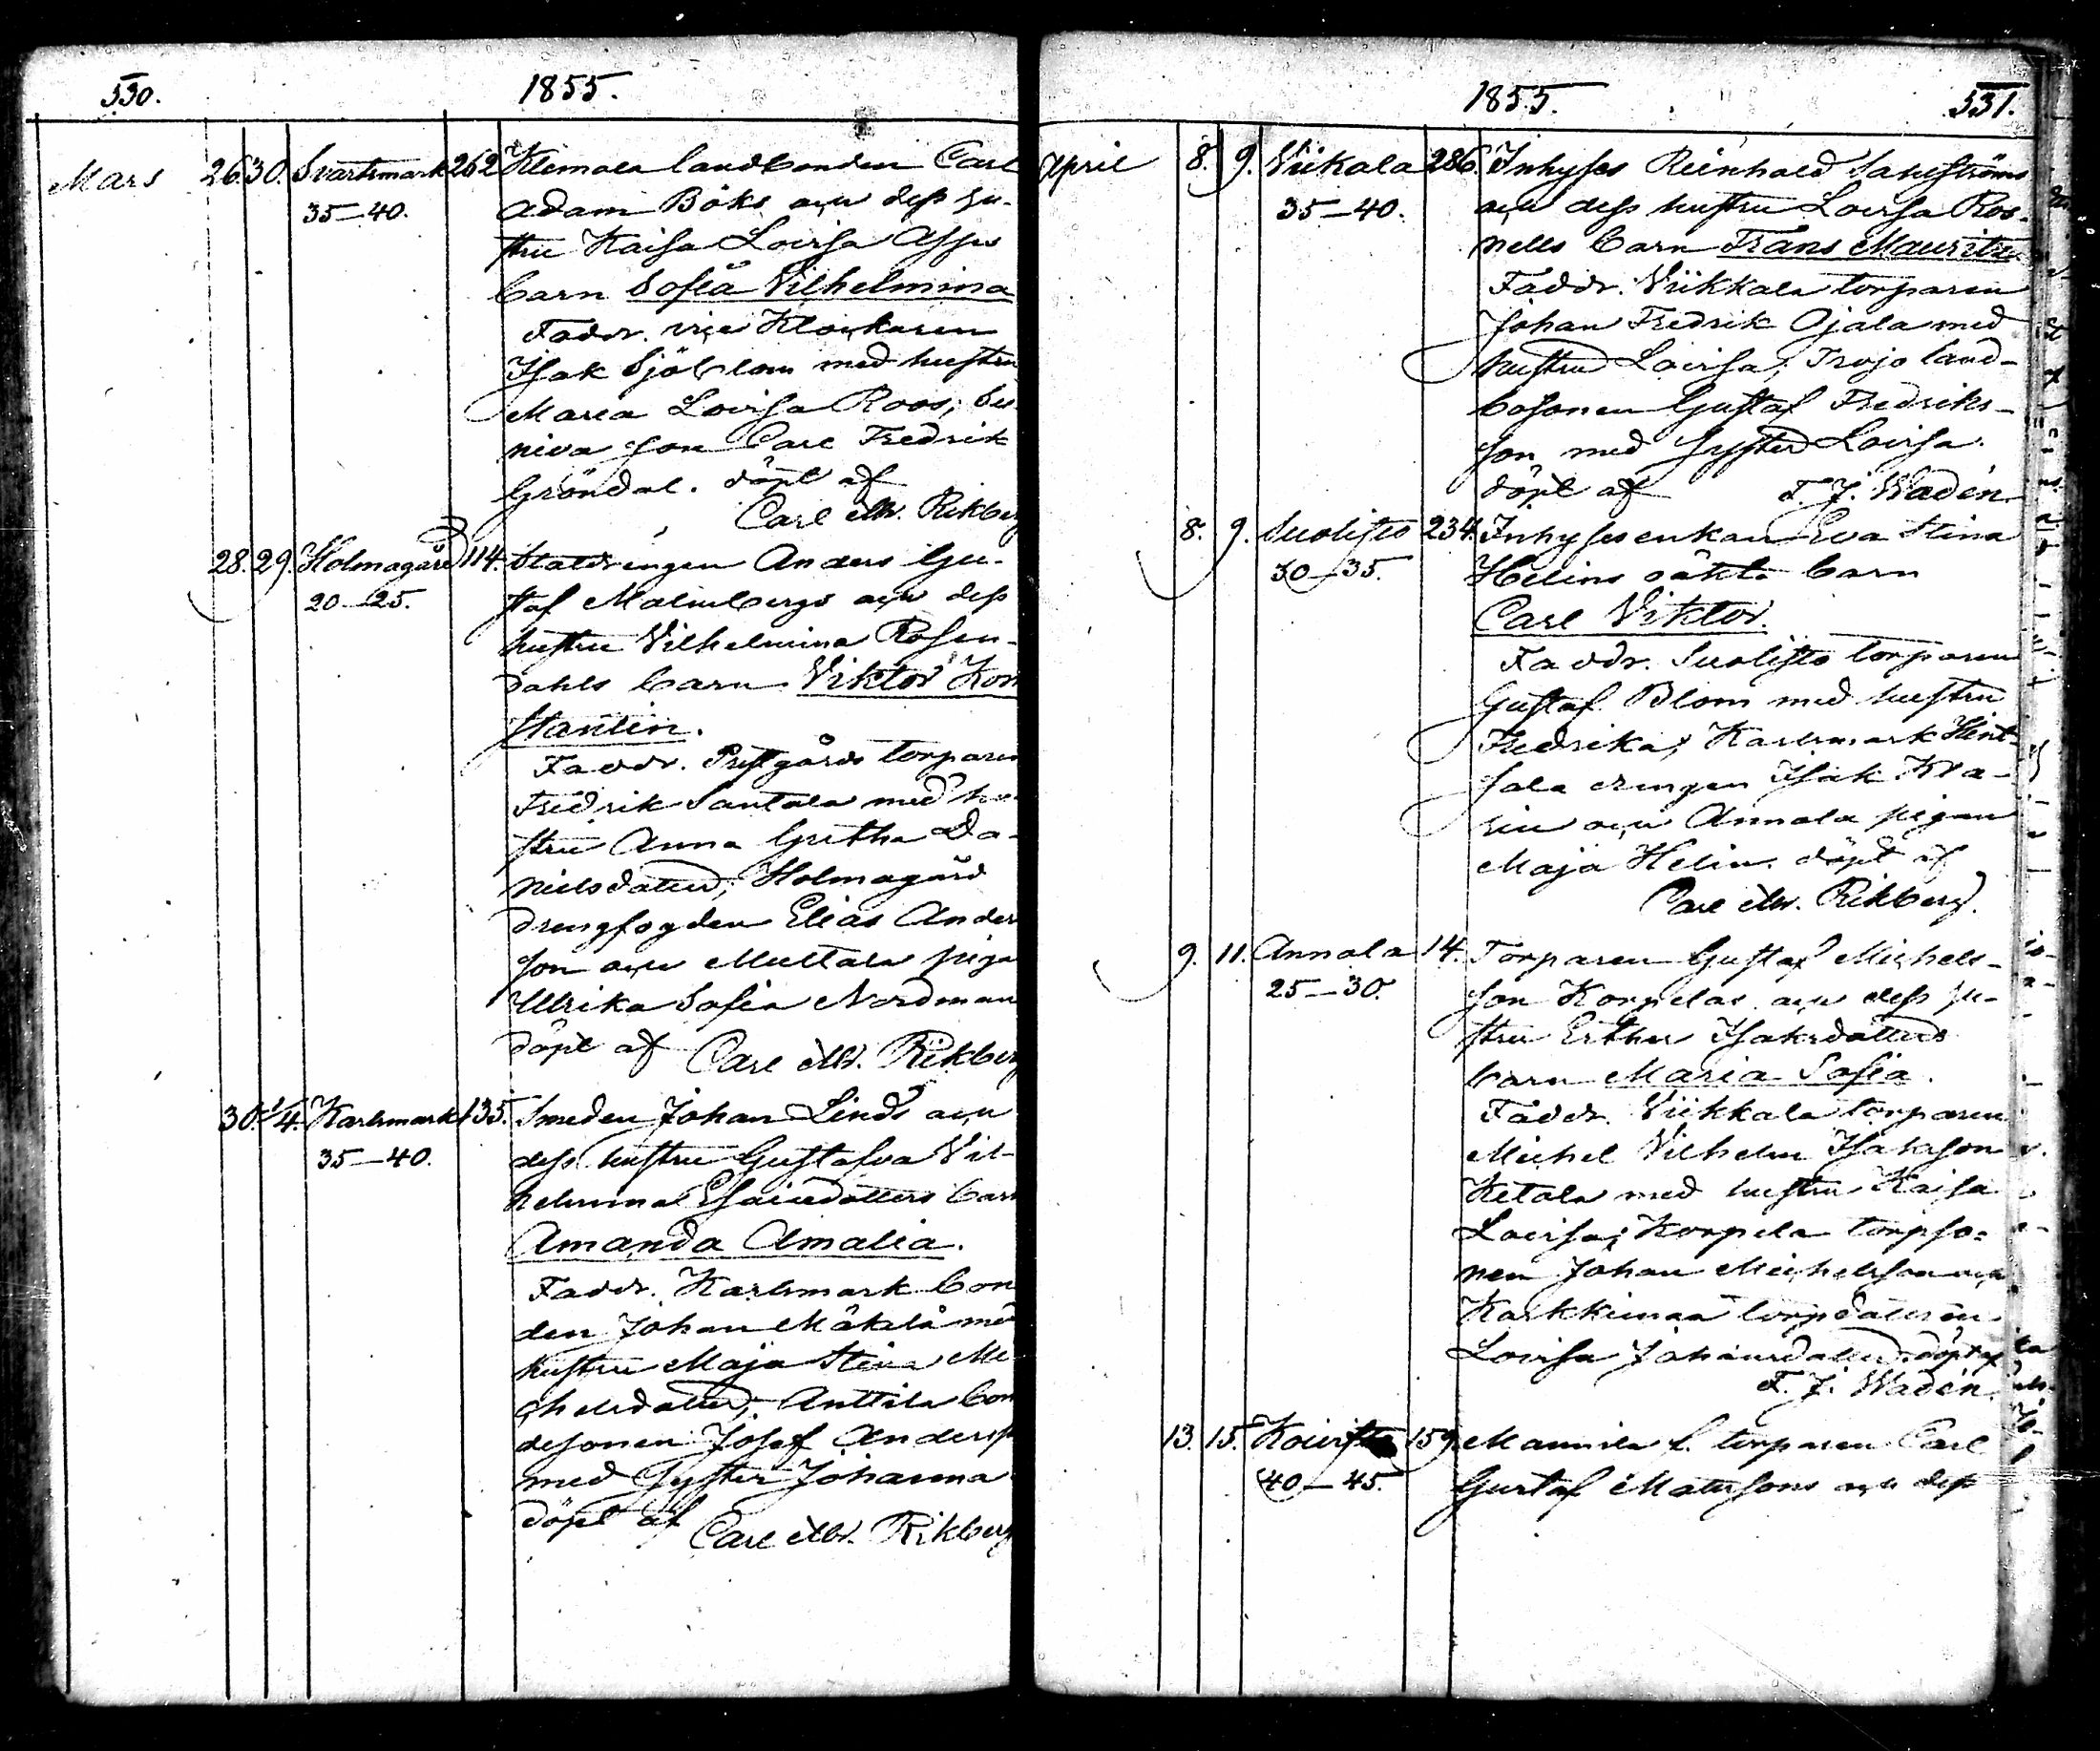 530.
1855.
Mars 26. 30. Svartsmark 262 Klemola landbonden Carl
35—40. Adam Böks och dess hu-
stru Kaisa Lovisa Asps
barn Sofia Vilhelmina
Faddr. vice Klockaren
Isak Sjöblom med hustru
Maria Lovisa Roos; Su-
niva son Carl Fredrik
Gröndal. döpt af
Carl M. Rikberg
28. 29. Holmagård 114. Statdrengen Anders Gu-
20—25. staf Malmbergs och dess
hustru Vilhelmina Rosen-
dahls barn Viktor Kon
stantin.
Faddr. Prestgårds torparen
Fredrik Santala med hu-
stru Anna Gretha Da-
nielsdotter; Holmagård
drengfogden Elias Ander
son och Muttala piga
Ullrika Sofia Nordman
döpt af Carl M. Rikberg
30. 1/4. Karlsmark 135. Smeden Johan Linds och
35—40. dess hustru Gustafva Vil-
helmina Esaiedotters barn
Amanda Amalia.
Faddr. Karlsmark bon
den Johan Mäkelä med
hustru Maja Stina Mi
chelsdotter; Anttila bon
desonen Josef Anderss
med syster Johanna
döpt af Carl M. Rikberg
1855.
531.
April 8. 9. Viikala 286. Inhyses Reinhold Sahlströms
35—40. och dess hustru Lovisa Ros-
nells barn Frans Mauritz
Faddr. Viikkala torparen
Johan Fredrik Ojala med
hustru Lovisa; Trojo land-
bosonen Gustaf Fredriks-
son med syster Lovisa.
döpt af F. J. Wadén
8. 9. Suolisto 234. Inhysesenkan Eva Stina
30—35. Helins oäkta barn
Carl Viktor.
Faddr. Suolisto torparen
Gustaf Blom med hustru
Fredrika; Karlsmark Hint-
sala drengen Isak Kra-
och Annala pigan
Maja Helin. döpt af
Carl M. Rikberg.
9. 11. Annala 14. Torparen Gustaf Michels-
25—30. son Korpelas och dess hu-
stru Esther Isaksdotters
barn Maria Sofia.
Faddr. Viikkala torparen
Michel Vilhelm Isakson
Ketola med hustru Kaisa
Lovisa; Korpela torpso-
nen Johan Michelsson och
Karkkimaa torpdottren
Lovisa Johansdotter. döpt af
F. J. Wadén.
13. 15. Koivisto 159. Mannila torparen Carl
40—45. Gustaf Matssons och dess